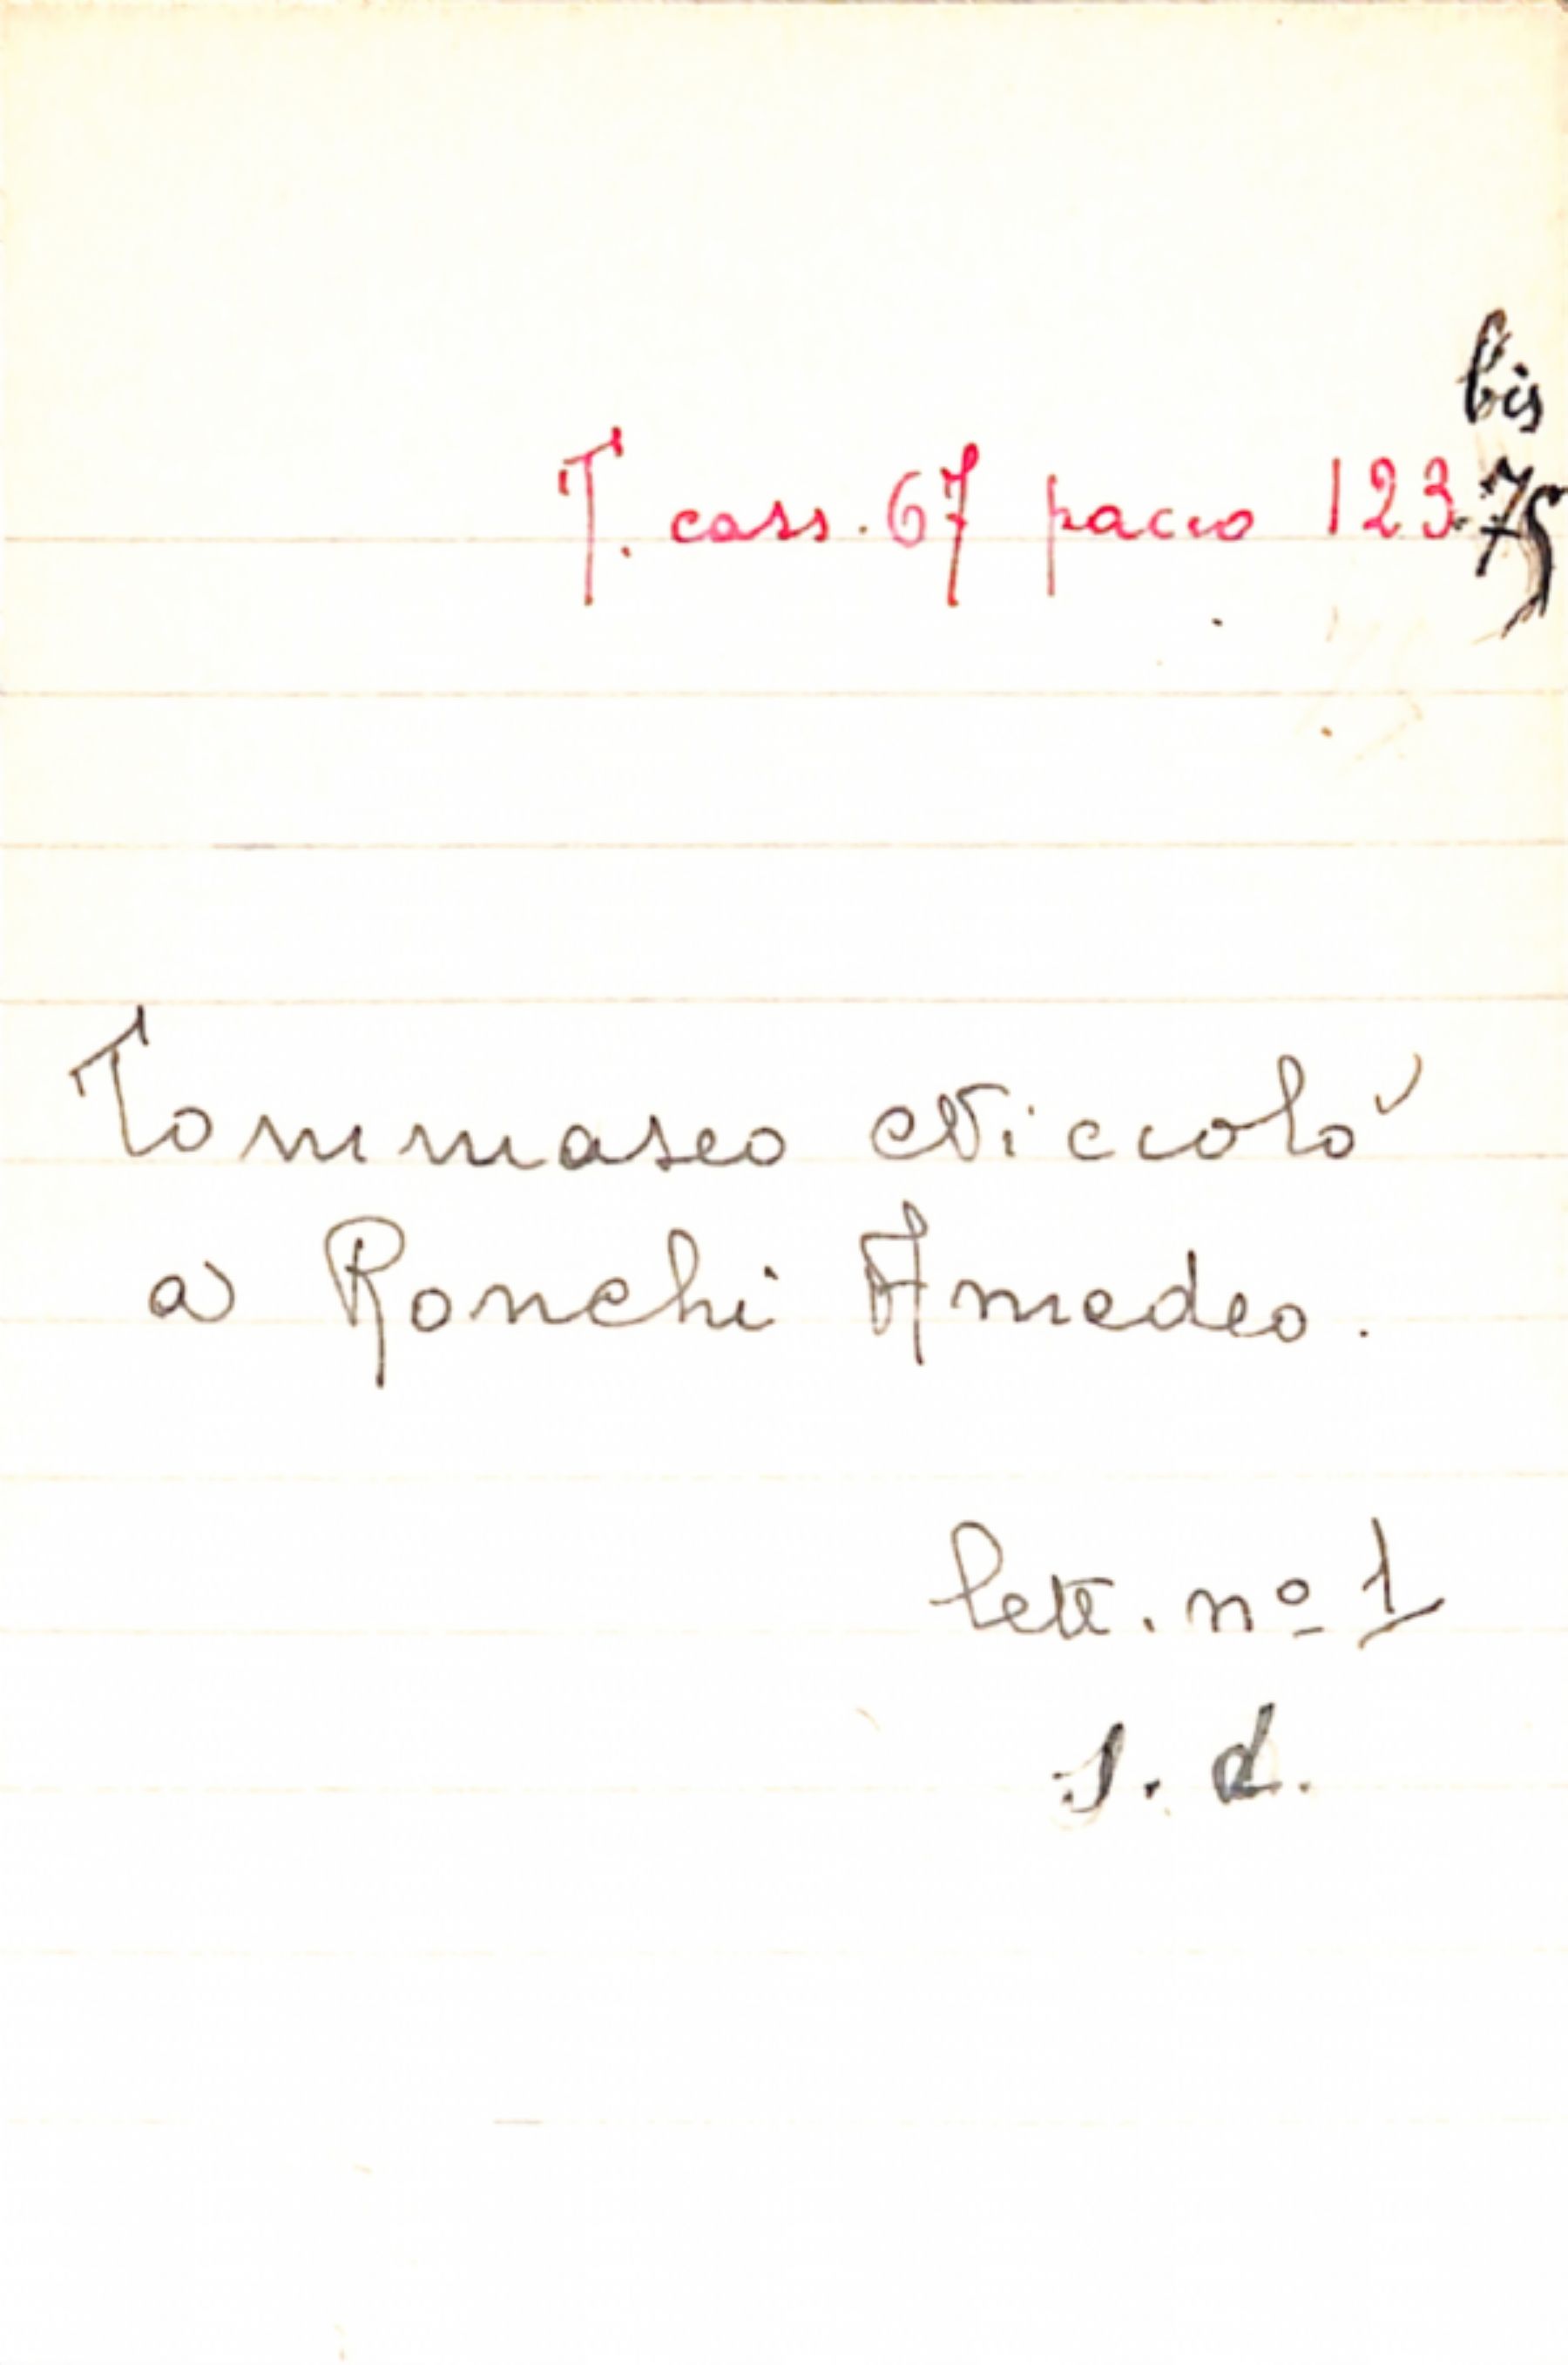 bis
T. cass. 67 pacco 123.75
Tommaseo Niccolò
a Ronchi Amedeo.
lett. nº 1
s. d.